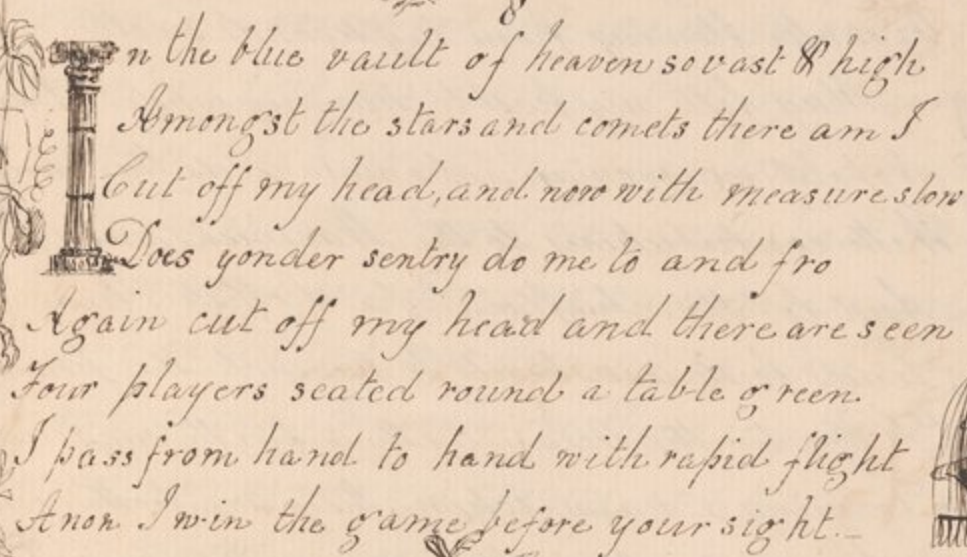 8
In the blue vault of heaven so vast & high
Amongst the stars and comets there am I
Cut off my head, and now with measure slow
Does yonder sentry do me to and fro
Again cut off my head and there are seen
Four players seated round a table green
I pass from hand to hand with rapid flight
Anon I win the game before your sight.